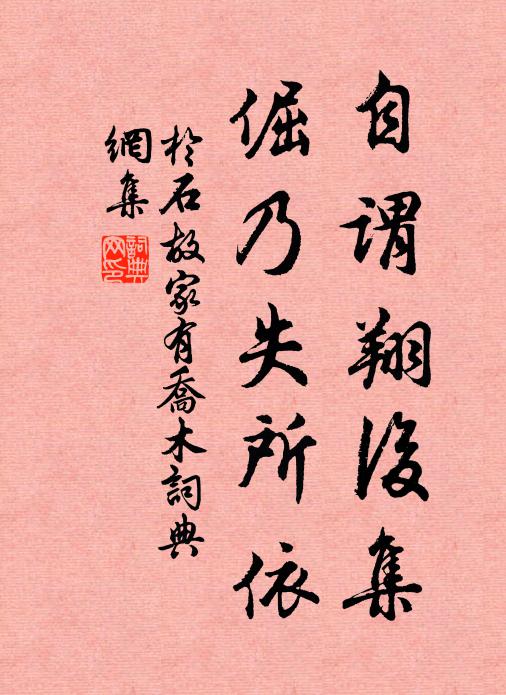 自謂翔後集
倔乃失所依
於石故家有喬木詞典
網集
詞典
网印